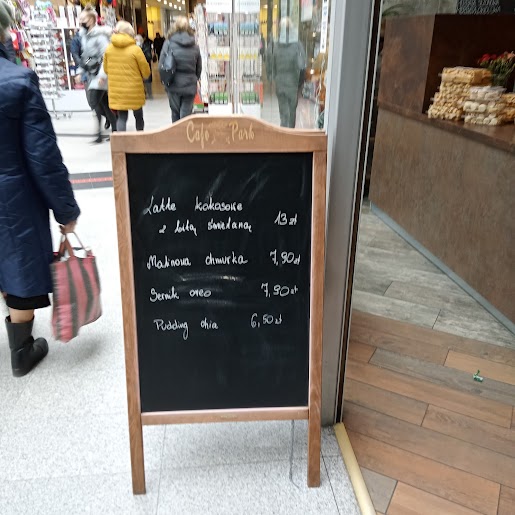 Café Park
Latte kokosowe
z bitą śmietaną 13 zł
Malinowa chmurka 7,90 zł
Sernik oreo 7,90 zł
Pudding chia 6,50 zł